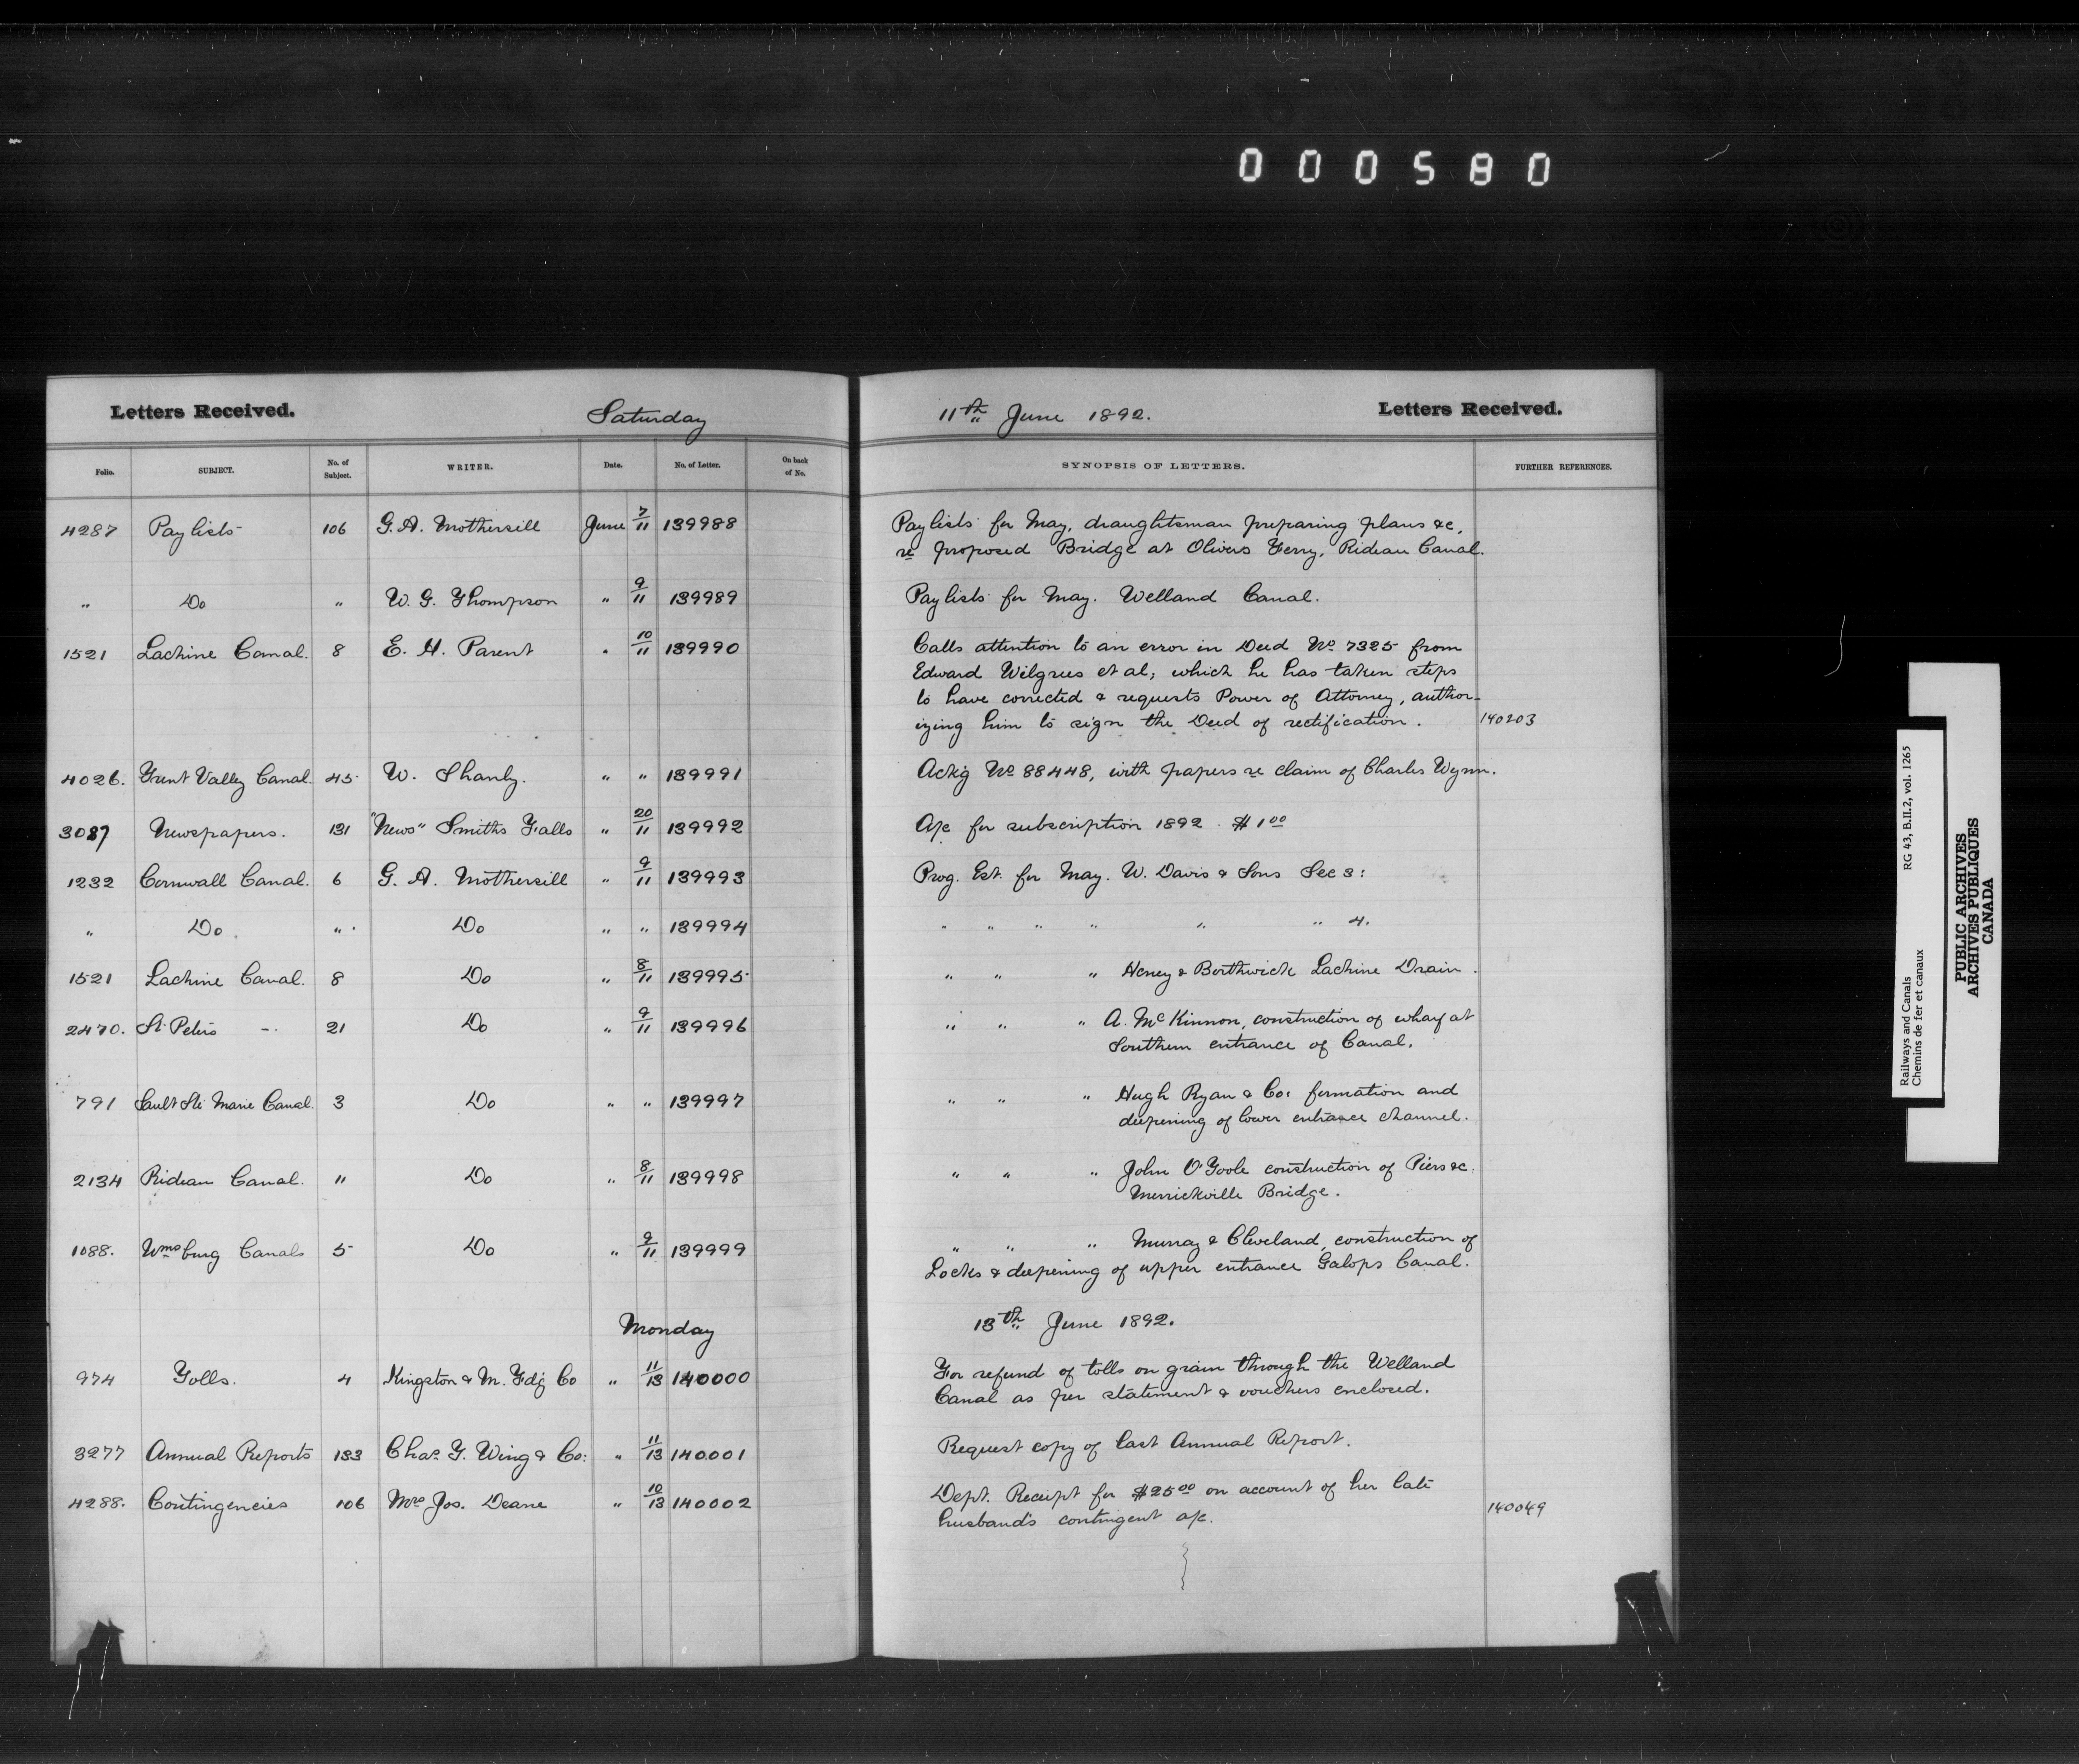 000580
Letters Received. Saturday 11th June 1892. Letters Received.
Folio. SUBJECT. No. of Subject. WRITER. Date. No. of Letter. On back of No. SYNOPSIS OF LETTERS. FURTHER REFERENCES.
4287 Paylists 106 G. A. Mothersill June 7/11 139988 Paylists for May, draughtsman preparing plans &c,
re proposed Bridge at Olivers Ferry, Rideau Canal.
" Do " W. G. Thompson " 9/11 139989 Paylists for May. Welland Canal.
1521 Lachine Canal. 8 E. H. Parent " 10/11 139990 Calls attention to an error in Deed No 7325 from
Edward Wilgress et al; which he has taken steps
to have corrected & requests Power of Attorney, author-
izing him to sign the Deed of rectification. 140203
4026. Trent Valley Canal. 45 W. Shanly. " " 139991 Ackg No 88448, with papers re claim of Charles Wynn.
3087 Newspapers. 131 "News" Smiths Falls " 20/11 139992 A/c for subscription 1892. $1 00
1232 Cornwall Canal. 6 G. A. Mothersill " 9/11 139993 Prog. Est. for May. W. Davis & Sons Sec 3:
" Do. " Do " " 139994 " " " " " " 4.
1521 Lachine Canal. 8 Do " 8/11 139995 " " " Heney & Borthwick Lachine Drain.
2470. St. Peters -. 21 Do " 9/11 139996 " " " A. McKinnon, construction of wharf at
Southern entrance of Canal.
791 Sault Ste Marie Canal. 3 Do " " 139997 " " " Hugh Ryan & Co: formation and
deepening of lower entrance channel.
2134 Rideau Canal. 11 Do " 8/11 139998 " " " John O'Toole construction of Piers &c.
Merrickville Bridge.
1088. Wmsburg Canals 5 Do " 9/11 139999 " " " Murray & Cleveland, construction of
Locks & deepening of upper entrance Galops Canal.
Monday 13th June 1892.
974 Tolls. 4 Kingston & M. Fdg Co " 11/13 140000 For refund of tolls on grain through the Welland
Canal as per statement & vouchers enclosed.
3277 Annual Reports 133 Chas. G. Wing & Co: " 11/13 140001 Request copy of last Annual Report.
4288. Contingencies 106 Mrs Jos. Deane " 10/13 140002 Dept. Receipt for $25 00 on account of her late
husband's contingent a/c. 140049
Railways and Canals RG 43, B.II.2, vol. 1265
Chemins de fer et canaux
PUBLIC ARCHIVES
ARCHIVES PUBLIQUES
CANADA